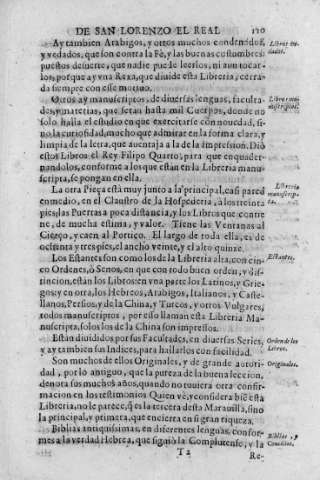 DE SAN LORENZO EL REAL 120
Ay tambien Arabigos, y otros muchos condenados,
y vedados, que son contra la Fè, y las buenas costumbres:
puestos de suerte, que nadie puede leerlos, ni aun tocar-
los, porque ay vna Rexa, que diuide esta Libreria, cerra-
da siempre con esse motiuo.
Otros ay manuscriptos, de diuersas lenguas, faculta-
des, y materias, que seràn hasta mil Cuerpos, donde no
solo halla el estudio en que exercitarse con nouedad, si-
no la curiosidad, mucho que admirar en la forma clara, y
limpia de la letra, que auentaja a la de la Impression. Diò
estos Libros el Rey Filipo Quarto, para que enquader-
nandolos, conforme a los que estàn en la Libreria manu-
scripta, se pongan en ella.
La otra Pieça està muy junto a la principal, casi pared
en medio, en el Claustro de la Hospederia, à los treinta
pies, las Puertas a poca distancia, y los Libros que contie
ne, de mucha estima, y valor. Tiene las Ventanas al
Cierço, y caen al Portico. El largo de toda ella, es de
ochenta y tres pies, el ancho veinte, y el alto quinze.
Los Estantes son como los de la Libreria alta, con cin-
co Ordenes, ò Senos, en que con todo buen orden, y dis-
tincion, estàn los Libros: en vna parte los Latinos, y Grie-
gos: y en otra, los Hebreos, Arabigos, Italianos, y Caste-
llanos, Persios, y de la China, y Turcos, y otros Vulgares,
todos manuscriptos, por esso llaman esta Libreria Ma-
nuscripta, solo los de la China son impressos.
Estàn diuididos por sus Facultades, en diuersas Series,
y ay tambien sus Indices, para hallarlos con facilidad.
Son muchos de ellos Originales, y de grande autori-
dad, por lo antiguo, que la pureza de la buena leccion,
denota sus muchos años, quando no tuuiera otra confir-
macion en los testimonios. Quien vè, y considera biẽ esta
Libreria, no le parece, q̃ es la tercera desta Marauilla, sino
la principal, y primera, que encierra en si gran riqueza.
Biblias antiquissimas, en diferentes lenguas, confor-
mes a la verdad Hebrea, que siguiò la Complutense, y la
T2
Re-
Libros ve-
dados.
Libros ma-
nuscriptos.
Libreria
manuscrip-
ta.
Estantes.
Orden de los
Libros.
Originales.
Biblias, y
Concilios.